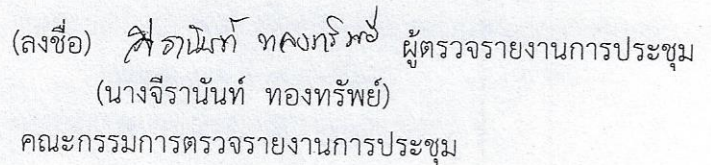 (ลงชื่อ) จีรานันท์ ทองทรัพย์ ผู้ตรวจรายงานการประชุม
(นางจีรานันท์ ทองทรัพย์)
คณะกรรมการตรวจรายงานการประชุม